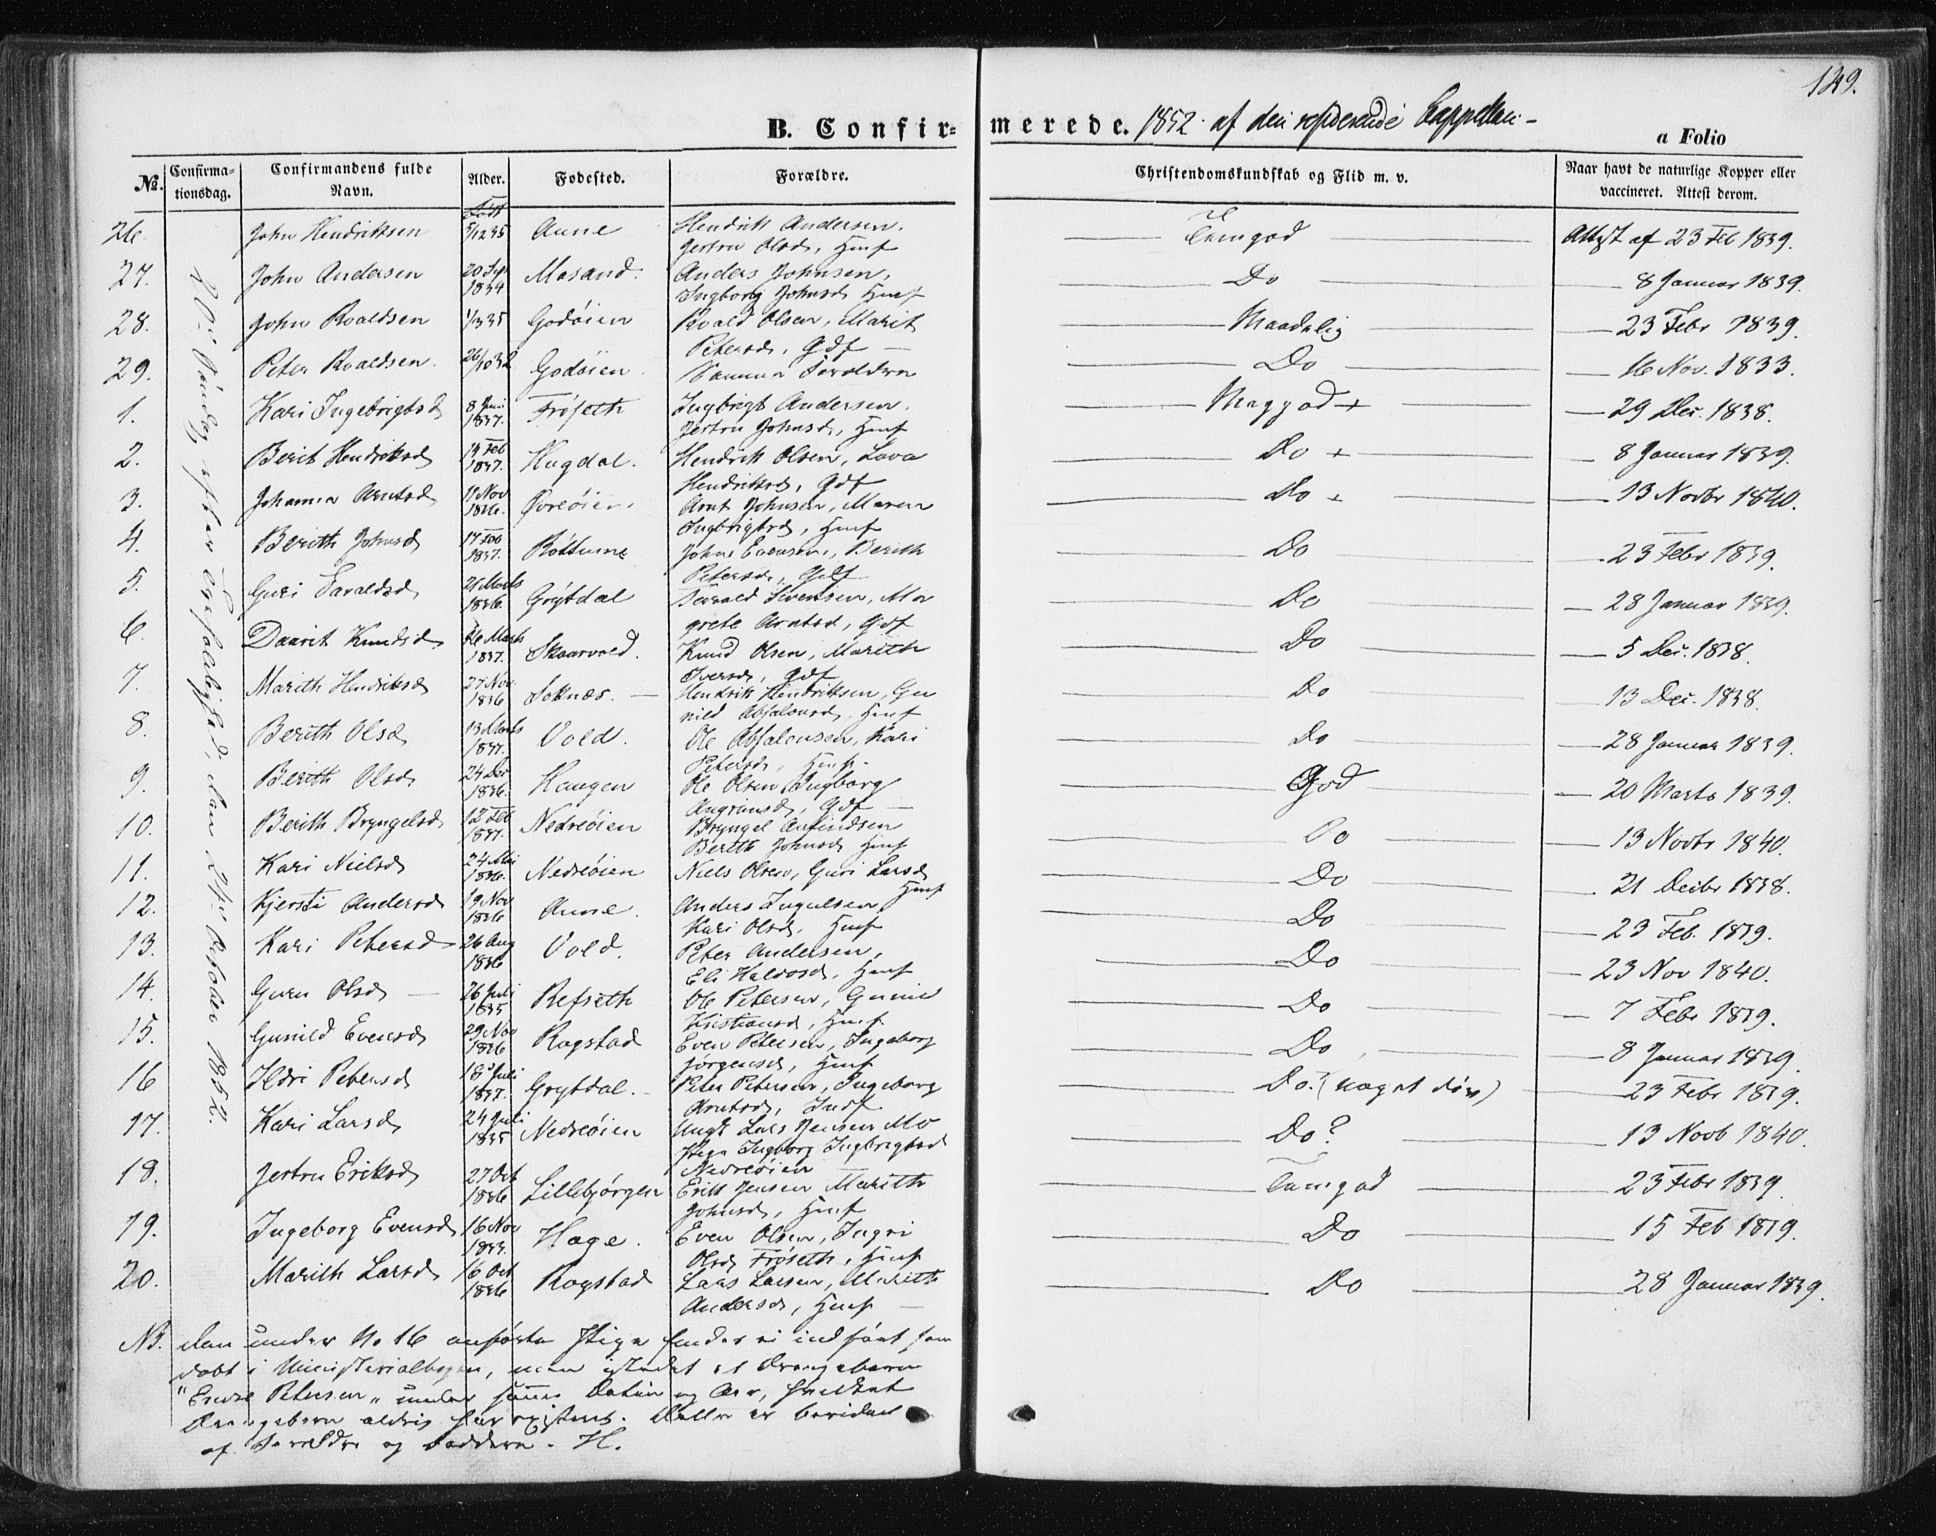 149.
B. Confirmerede. 1852 af den residerende Cappellan -
a Folio
No. Confirmationsdag. Confirmandens fulde Navn. Alder. Fødested. Forældre. Christendomskundskab og Flid m. v. Naar havt de naturlige Kopper eller vaccineret. Attest derom.
Født
26. John Hendriksen 5/12 35 Aune Hendrik Andersen, Temgod Attest af 23 Feb 1839.
Jertru Olsd, Hmf
27. John Andersen 20 Sep 1834 Mosand. Anders Johnsen, Do 8 Januar 1839.
Ingborg Johnsd Hmf
28. John Roaldsen 1/3 35 Godøien Roald Olsen, Marit Maadelig 23 Febr 1839.
Petersd, Gdf
29. Peter Roaldsen. 26/10 32 Godøien Samme Forældre Do 16 Nov. 1833.
1. Kari Ingebrigtsd 8 Juni 1837. Frøseth Ingbrigt Andersen. Meggod + 29 Dec. 1838.
Jertru Johnsd, Hmf
2. Berit Hendriksd Feb 1837. Hugdal. Hendrik Olsen, Lava Do + 8 Januar 1839.
Hendriksd, Gdf
3. Johanna Arntsd 11 Nov 1836. Øvreøien. Arnt Johnsen, Maren Do + 13 Novbr 1840.
Ingbrigtsd, Hmf
4. Berith Johnsd 17 Feb 1837. Røttume John Evensen, Berith Do 23 Febr 1839.
Petersd, Gdf
5. Guri Tavaldsd 21 Marts 1836. Grytdal Tavald Sivensen, Mar Do 28 Januar 1839.
grete Arntsd, Gdf
6. Daarit Knudsd 26 Marts 1837. Skaarvold. Knud Olsen, Marith Do 5 Dec. 1838.
Iversd, Gdf
7. Marith Hendriksd 27 Nov. 1836 Soknæs. Hendrik Hendriksen, Gu Do 13 Dec. 1838.
nild Absalonsd, Hmf
8. Berith Olsd 13 Marts 1837. Vold. Ole Absalonsen, Kari Do 28 Januar 1839.
Petersd, Hmf.
9. Berith Olsd 24 Dec 1836. Haugen Ole Olsen Ingborg God 20 Marts 1839.
Angrimsd, Gdf
10. Berith Bryngelsd 12 Feb 1837. Nedreøien Bryngel Arfindsen Do 13 Novbr 1840.
Berith Johnsd Hmf
11. Kari Nielsd 24 Mai 1836. Nedreøien Niels Olsen, Guri Larsd Do 21 Decbr 1838.
Hmf
12. Kjersti Andersd 19 Nov 1836 Aune. Anders Ingulsen Do 23 Feb. 1839.
Kari Olsd, Hmf
13. Kari Petersd 26 Aug 1836 Vold. Peter Andersen, Do 23 Nov 1840.
Eli Halvosd, Hmf
14. Guru Olsd 26 Juli 1835 Refseth Ole Petersen, Gunild Do 7 Febr 1839.
Kristiansd, Hmf
15. Gunild Evensd 29 Nov 1836 Rogstad Even Petersen, Ingeborg Do 8 Januar 1839.
Jørgensd, Hmf
16 Ildri Petersd 18 Juli 1837. Grytdal. Peter Petersen, Ingeborg Do. (noget døv) 23 Febr 1839.
Arntsd, Indf
17. Kari Larsd 24 Juli 1835 Nedreøien Ungk Lars Jensen Mo Do? 13 Novb 1840.
Pige Ingborg Ingbrigtsd
Nedreøien
18. Jertru Eriksd 27 Oct 1836 Lillebjørgen Erik Jensen Marith Temgod 23 Febr 1839.
Johnsd, Hmf
19. Ingeborg Evensd 16 Nov 1833. Hage. Even Olsen, Ingri Do 15 Feb 1839.
Olsd Frøseth, Hmf
20. Marith Larsd 16 Oct 1836 Rogstad Lars Larsen, Marith Do 28 Januar 1839.
Andersd, Hmf
20de Søndag efter Trefoldighed, den 24de October 1852.
NB. den under No 16 anførte Pige findes ei indført som
døbt i Ministerialbogen, men istedet et Drengebarn
"Endre Petersen" under samme Datum og Aar, hvilket
Drengebarn aldrig har existeret. Dette er bevidnet
af Forældre og Faddere. H.